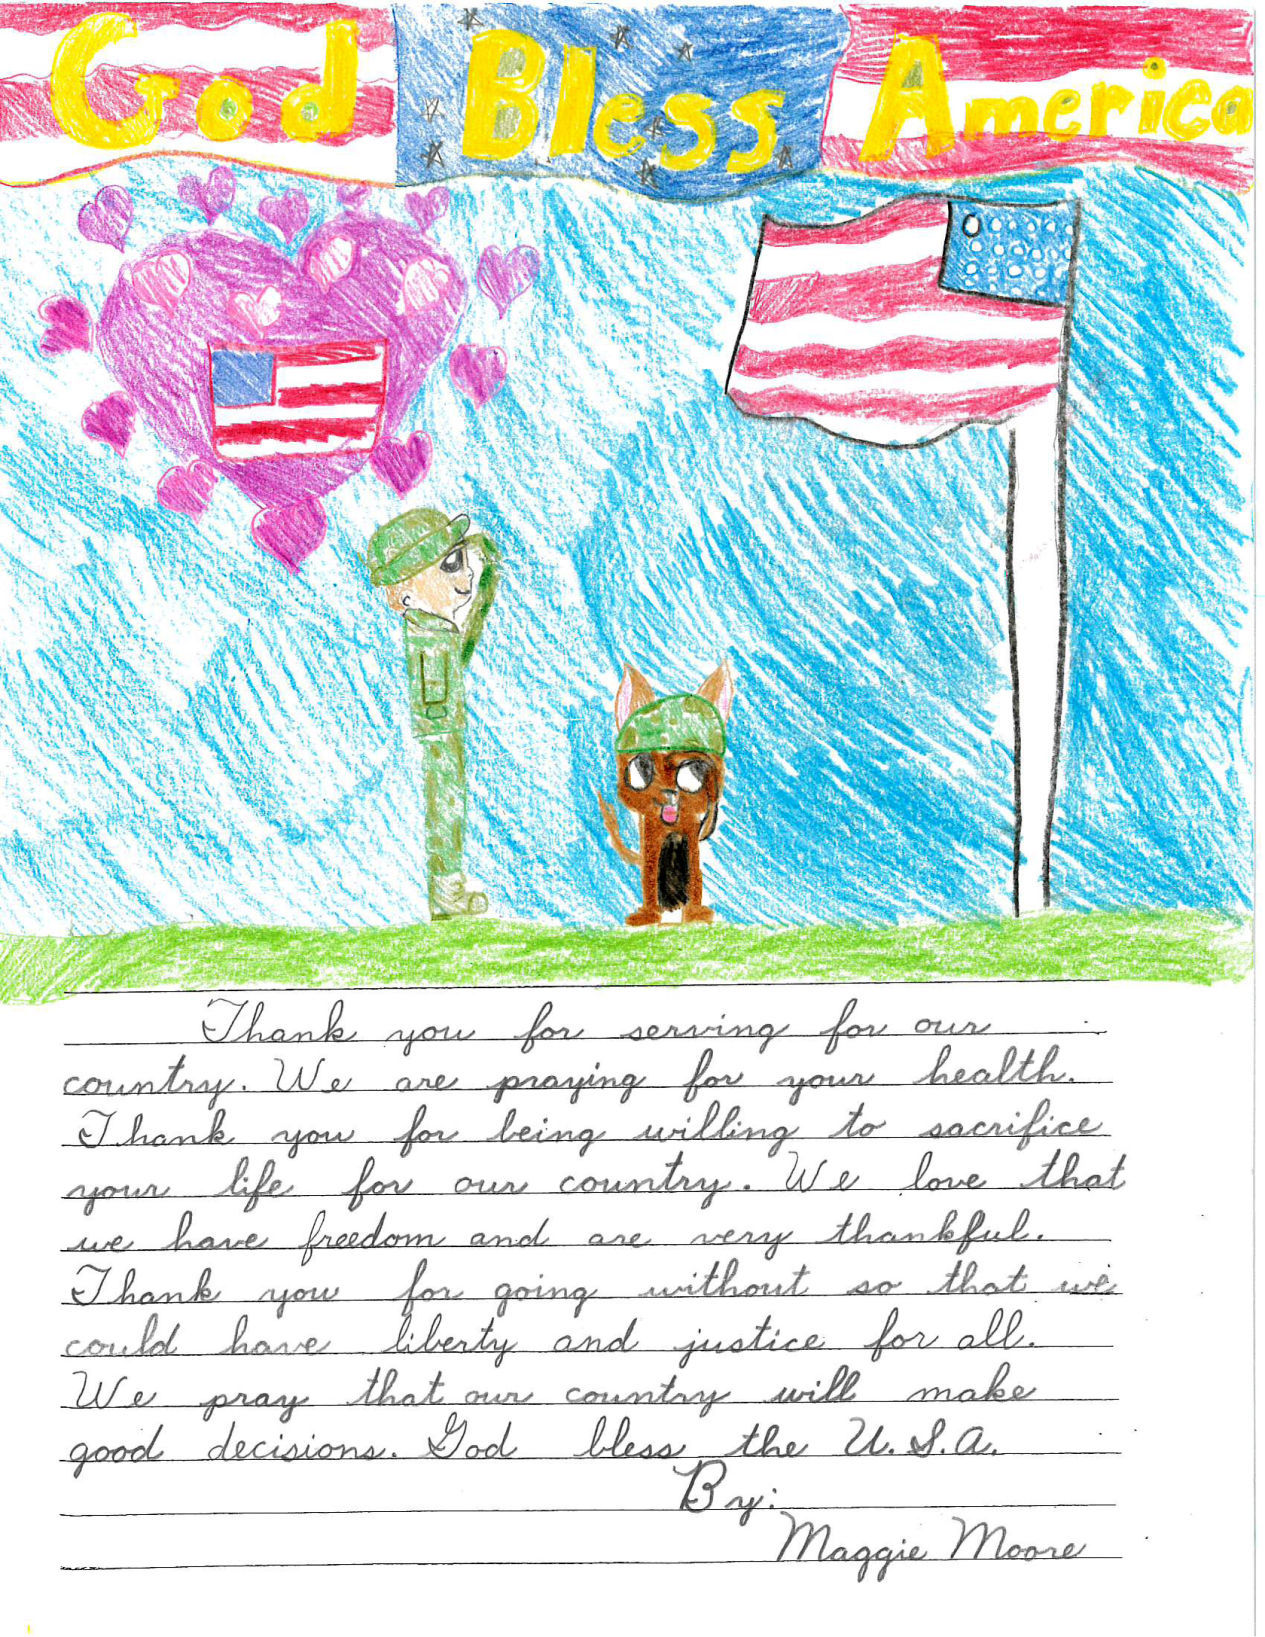 God Bless America
Thank you for serving for our
country. We are praying for your health.
Thank you for being willing to sacrifice
your life for our country. We love that
we have freedom and are very thankful.
Thank you for going without so that we
could have liberty and justice for all.
We pray that our country will make
good decisions. God bless the U.S.A.
By:
Maggie Moore